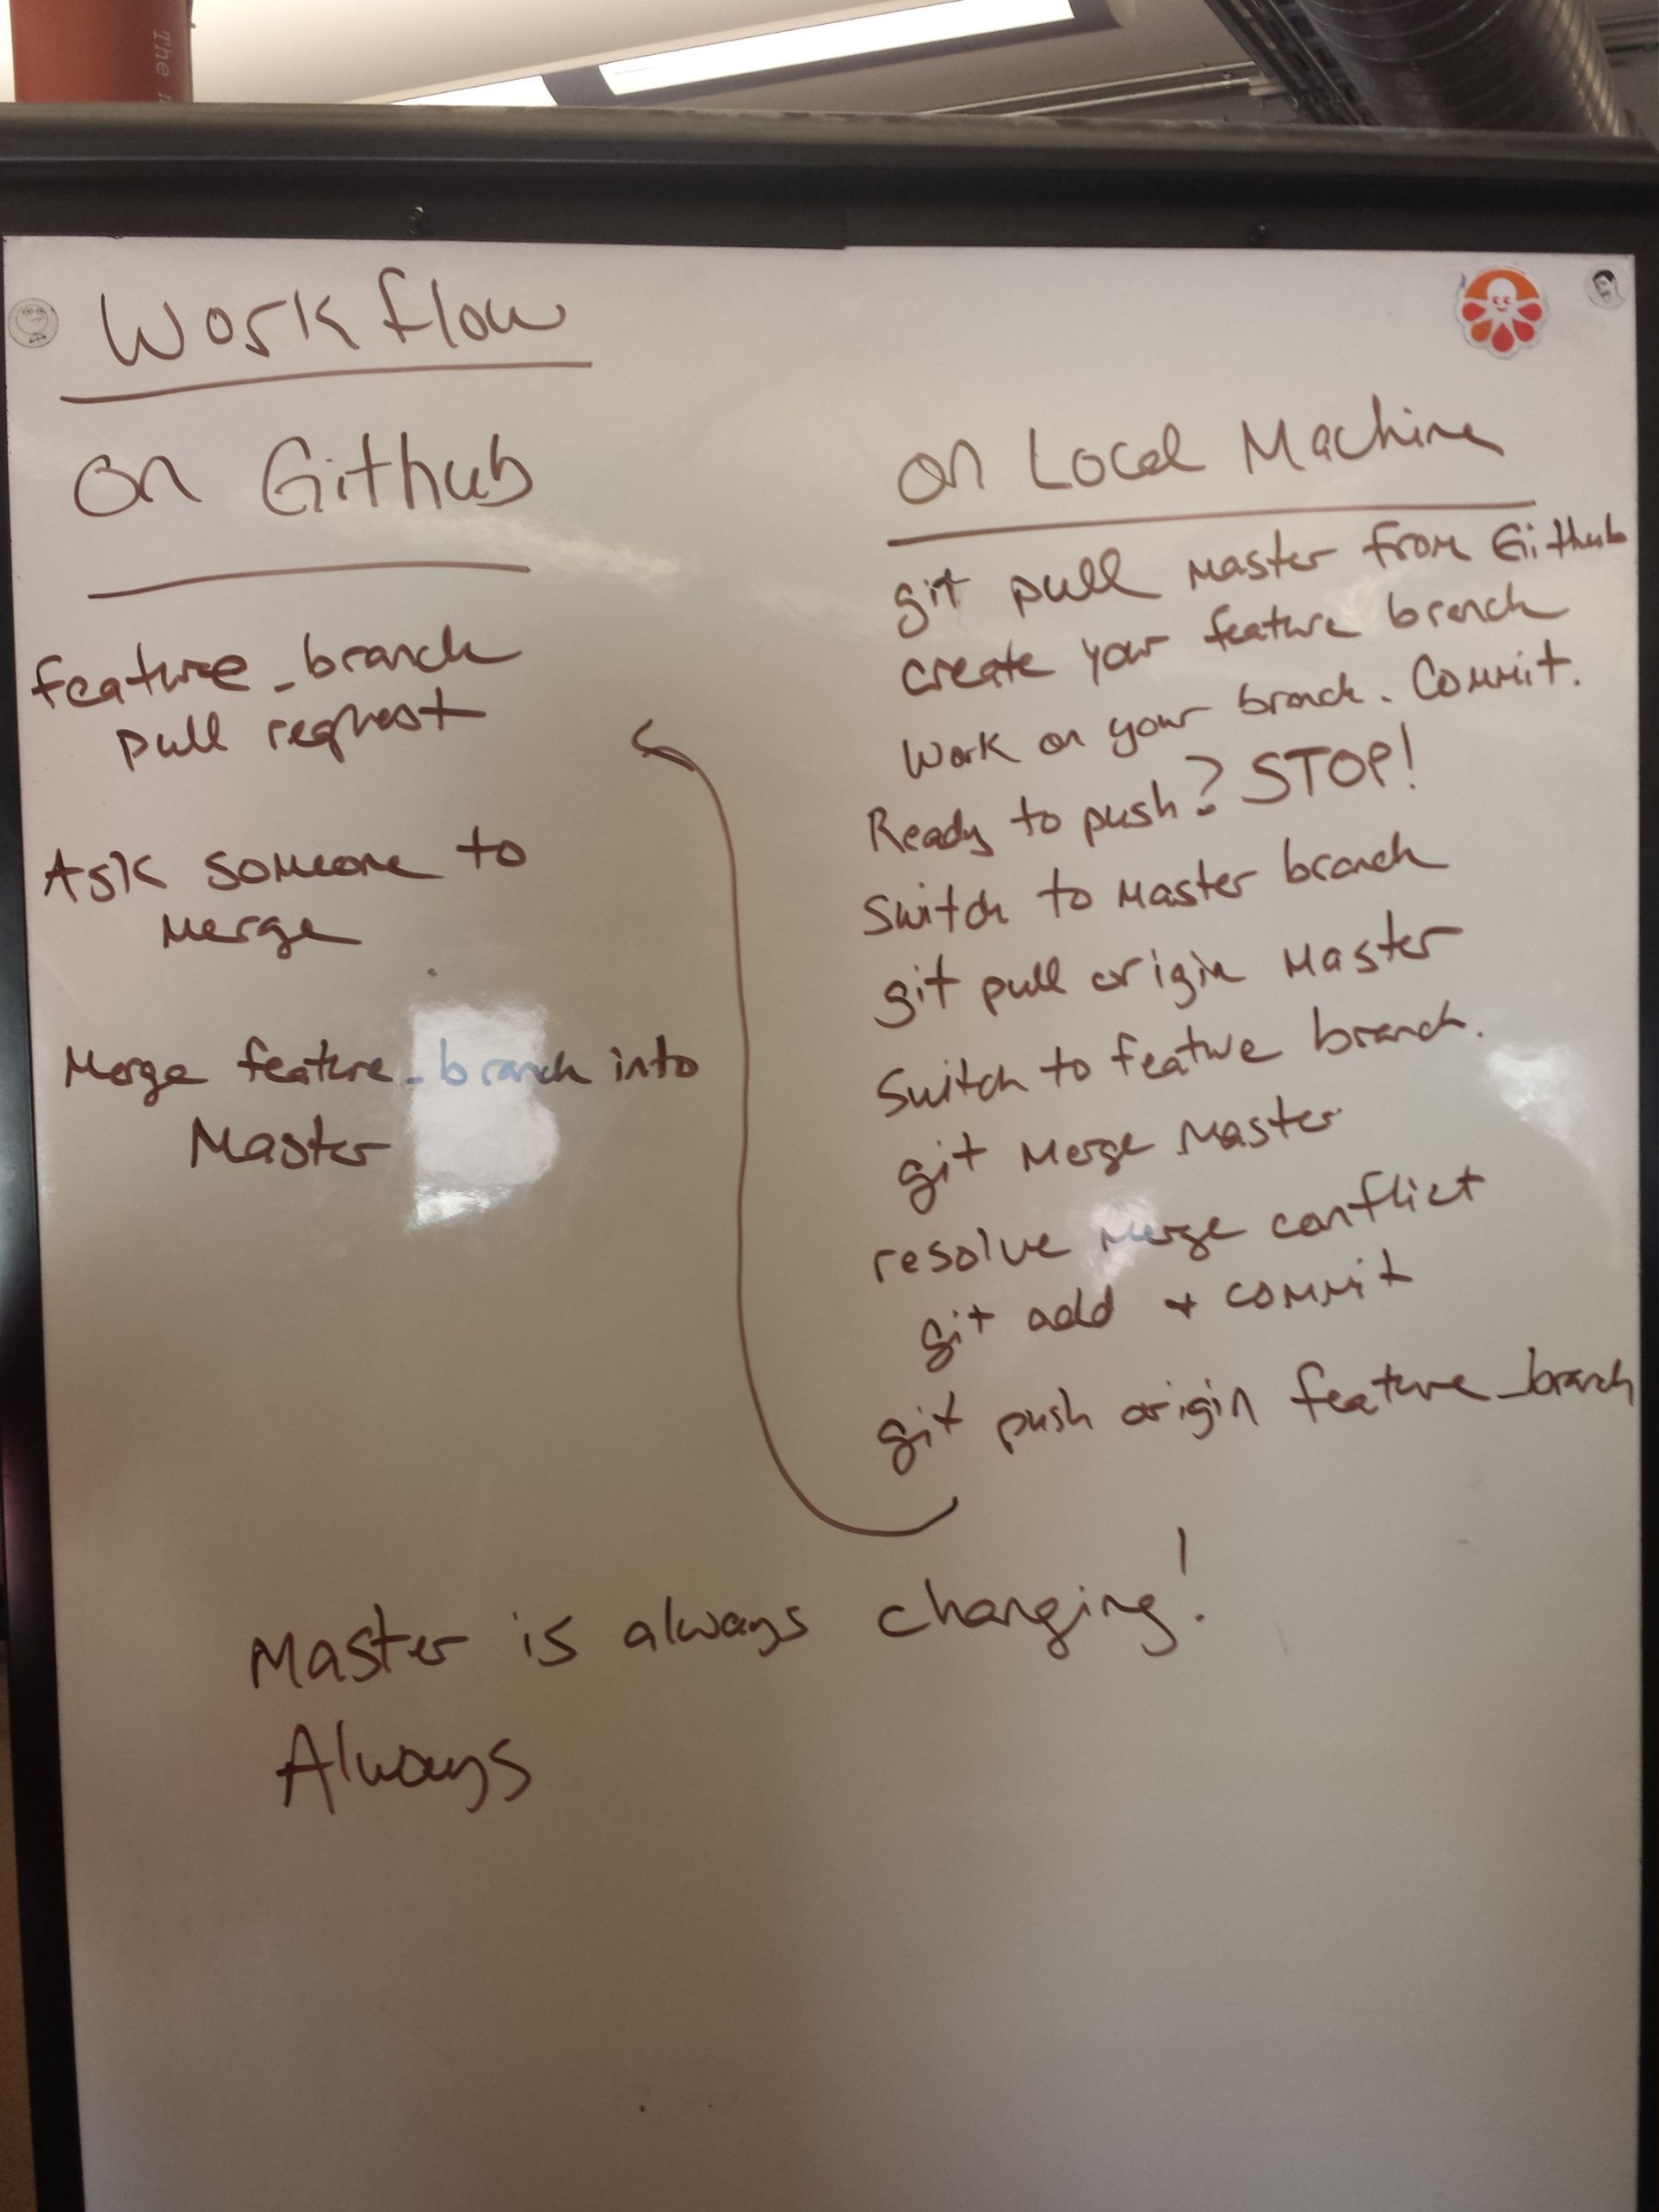 The
Workflow
On Github
feature_branch
pull request
Ask someone to
merge
Merge feature_branch into
Master
On Local Machine
git pull master from Github
create your feature branch
Work on your branch. Commit.
Ready to push? STOP!
Switch to master branch
git pull origin master
Switch to feature branch.
git merge master
resolve merge conflict
git add + commit
git push origin feature_branch
Master is always changing!
Always